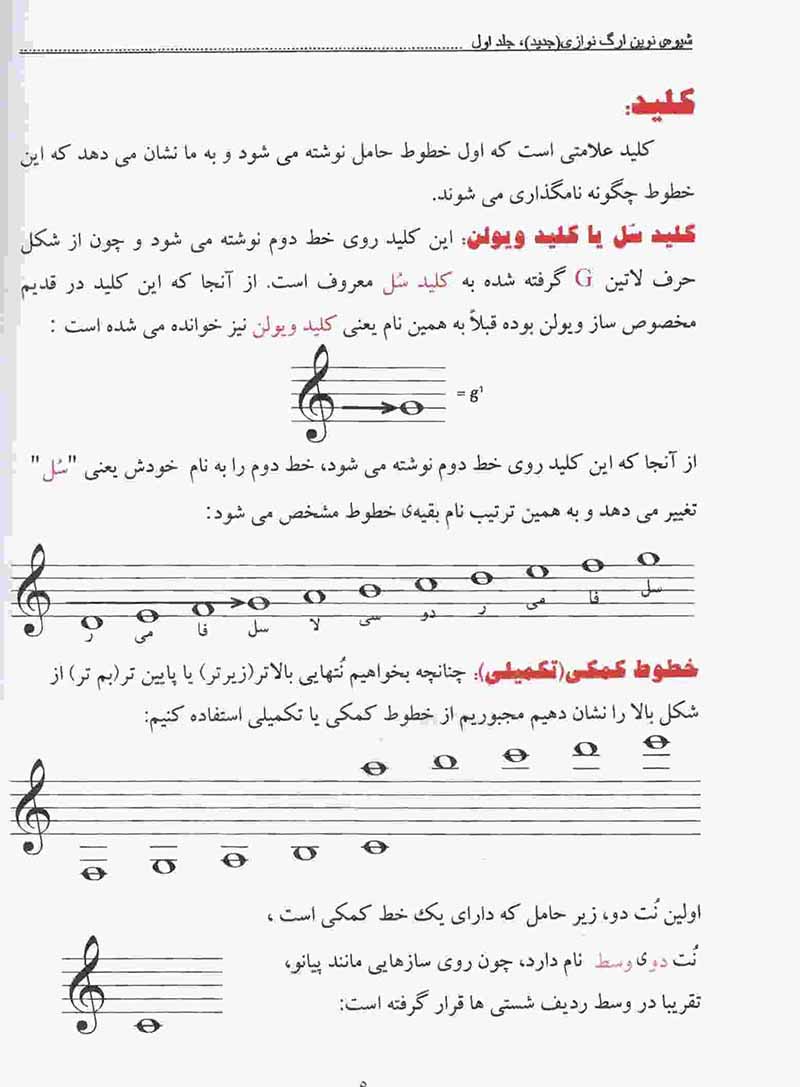 شیوه‌ی نوین ارگ نوازی(جدید)، جلد اول
کلید:
کلید علامتی است که اول خطوط حامل نوشته می شود و به ما نشان می دهد که این
خطوط چگونه نامگذاری می شوند.
کلید سُل یا کلید ویولن: این کلید روی خط دوم نوشته می شود و چون از شکل
حرف لاتین G گرفته شده به کلید سُل معروف است. از آنجا که این کلید در قدیم
مخصوص ساز ویولن بوده قبلاً به همین نام یعنی کلید ویولن نیز خوانده می شده است :
= g¹
از آنجا که این کلید روی خط دوم نوشته می شود، خط دوم را به نام خودش یعنی "سُل"
تغییر می دهد و به همین ترتیب نام بقیه‌ی خطوط مشخص می شود:
ر می فا سل لا سی دو ر می فا سل
خطوط کمکی(تکمیلی): چنانچه بخواهیم نُتهایی بالاتر(زیرتر) یا پایین تر(بم تر) از
شکل بالا را نشان دهیم مجبوریم از خطوط کمکی یا تکمیلی استفاده کنیم:
اولین نُت دو، زیر حامل که دارای یک خط کمکی است ،
نُت دوی وسط نام دارد، چون روی سازهایی مانند پیانو،
تقریبا در وسط ردیف شستی ها قرار گرفته است: